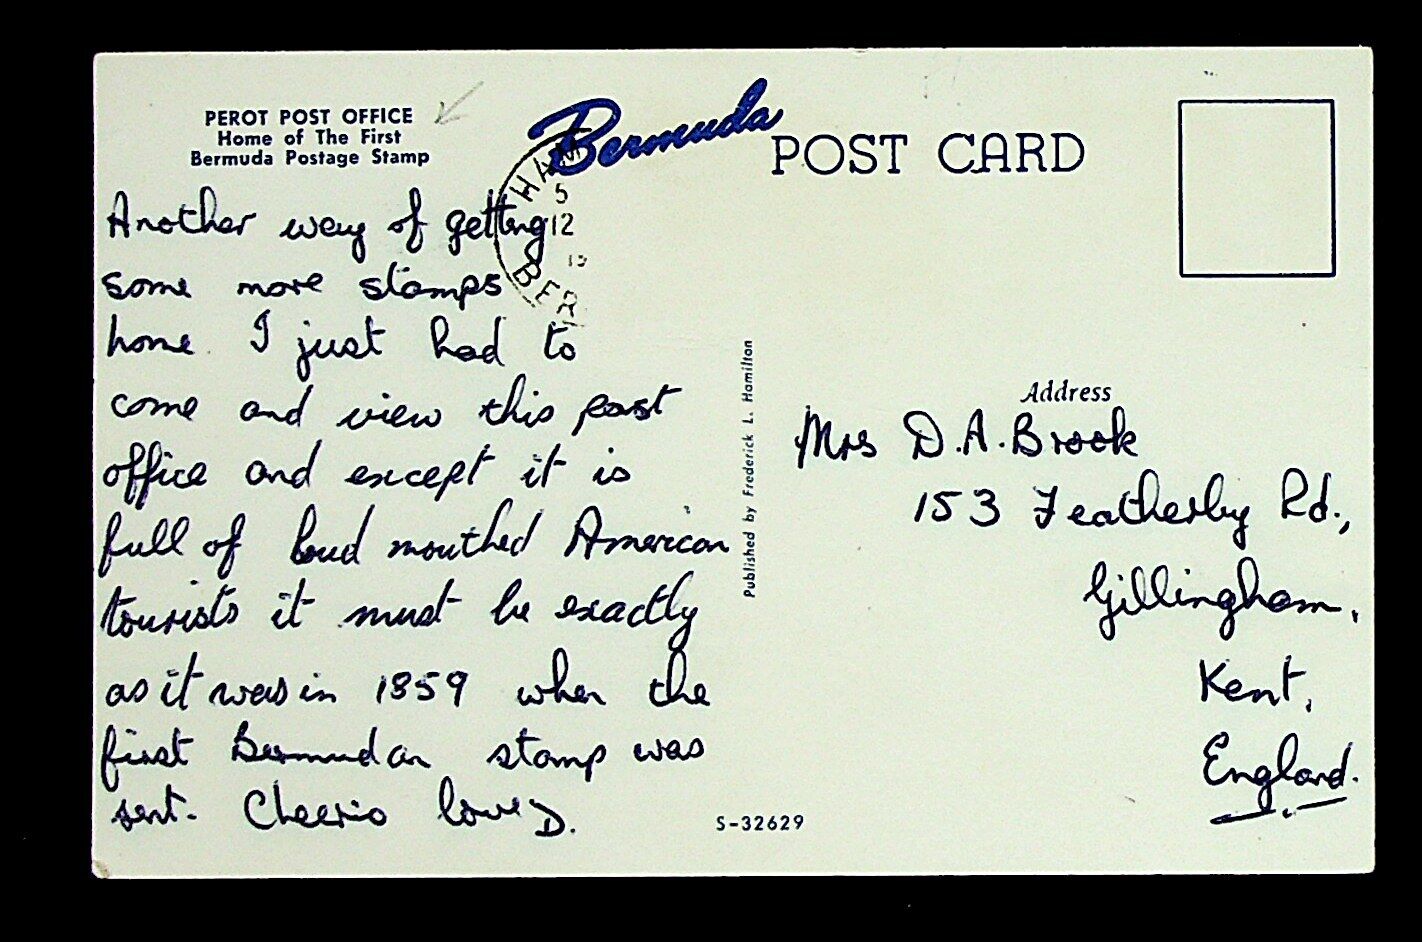 PEROT POST OFFICE
Home of The First
Bermuda Postage Stamp
Bermuda
POST CARD
HAM
5
12
BER
Another way of getting
some more stamps
home. I just had to
come and view this post
office and except it is
full of loud mouthed American
tourists it must be exactly
as it was in 1859 when the
first Bermudan stamp was
sent. Cheerio love D.
Published by Frederick L. Hamilton
S-32629
Address
Mrs D.A. Brook
153 Featherby Rd.,
Gillingham,
Kent,
England.